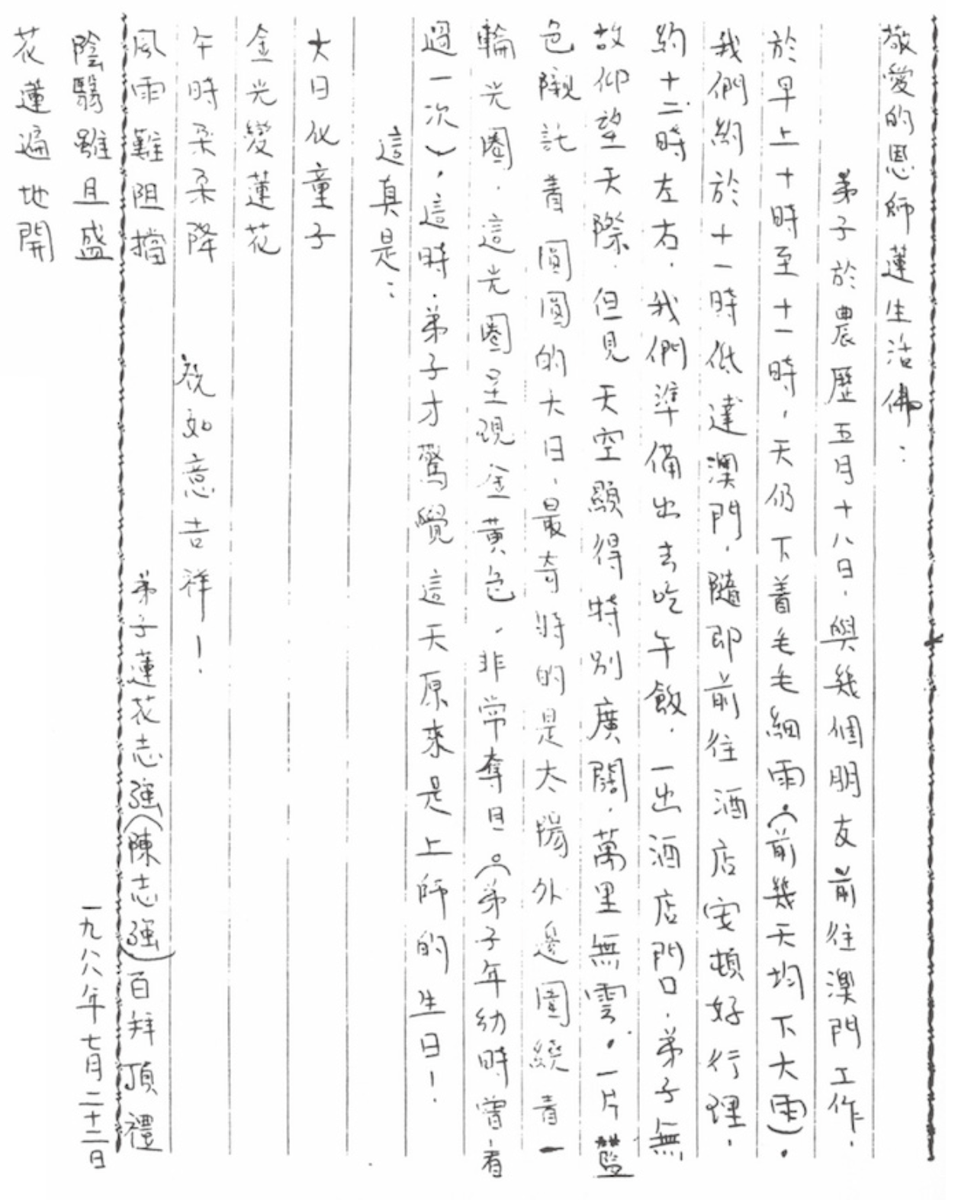 敬愛的恩師蓮生活佛：
弟子於農歷五月十八日，與幾個朋友前往澳門工作，
於早上十時至十一時，天仍下着毛毛細雨，（前幾天均下大雨）。
我們約於十一時低達澳門，隨即前往酒店安頓好行理，
約十二時左右，我們準備出去吃午飯，一出酒店門口，弟子無
故仰望天際，但見天空顯得特別廣闊，萬里無雲，一片藍
色襯託着圓圓的大日，最奇特的是太陽外邊圍繞着一
輪光圈，這光圈呈現金黃色，非常奪目。（弟子年幼時曾看
過一次），這時，弟子才驚覺這天原來是上師的生日！
這真是：
大日化童子
金光變蓮花
午時柔柔降
風雨難阻擋
陰翳雖且盛
花蓮遍地開
祝如意吉祥！
弟子蓮花志強（陳志強）百拜頂禮
一九八八年七月二十二日